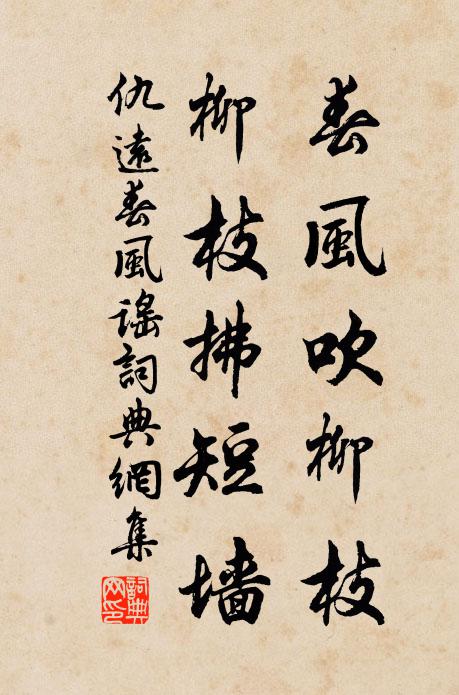 春風吹柳枝
柳枝拂短墙
仇遠春風謠詞典網集
詞典
网印